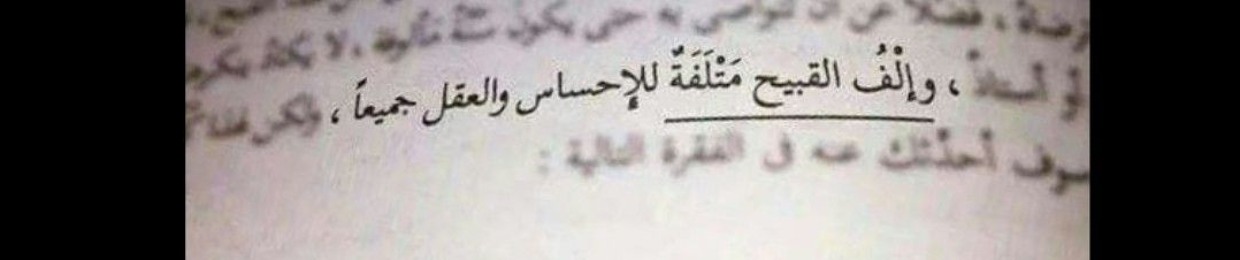 فضلاً عن أن تتواصى به حتى يكون سنة مألوفة ، لا يكاد يكره
أو أستاذ ، وإلْفُ القبيح مَتْلَفَةٌ للإحساس والعقل جميعاً ، ولكن هذا
سوف أحدثك عنه فى الفقرة التالية :